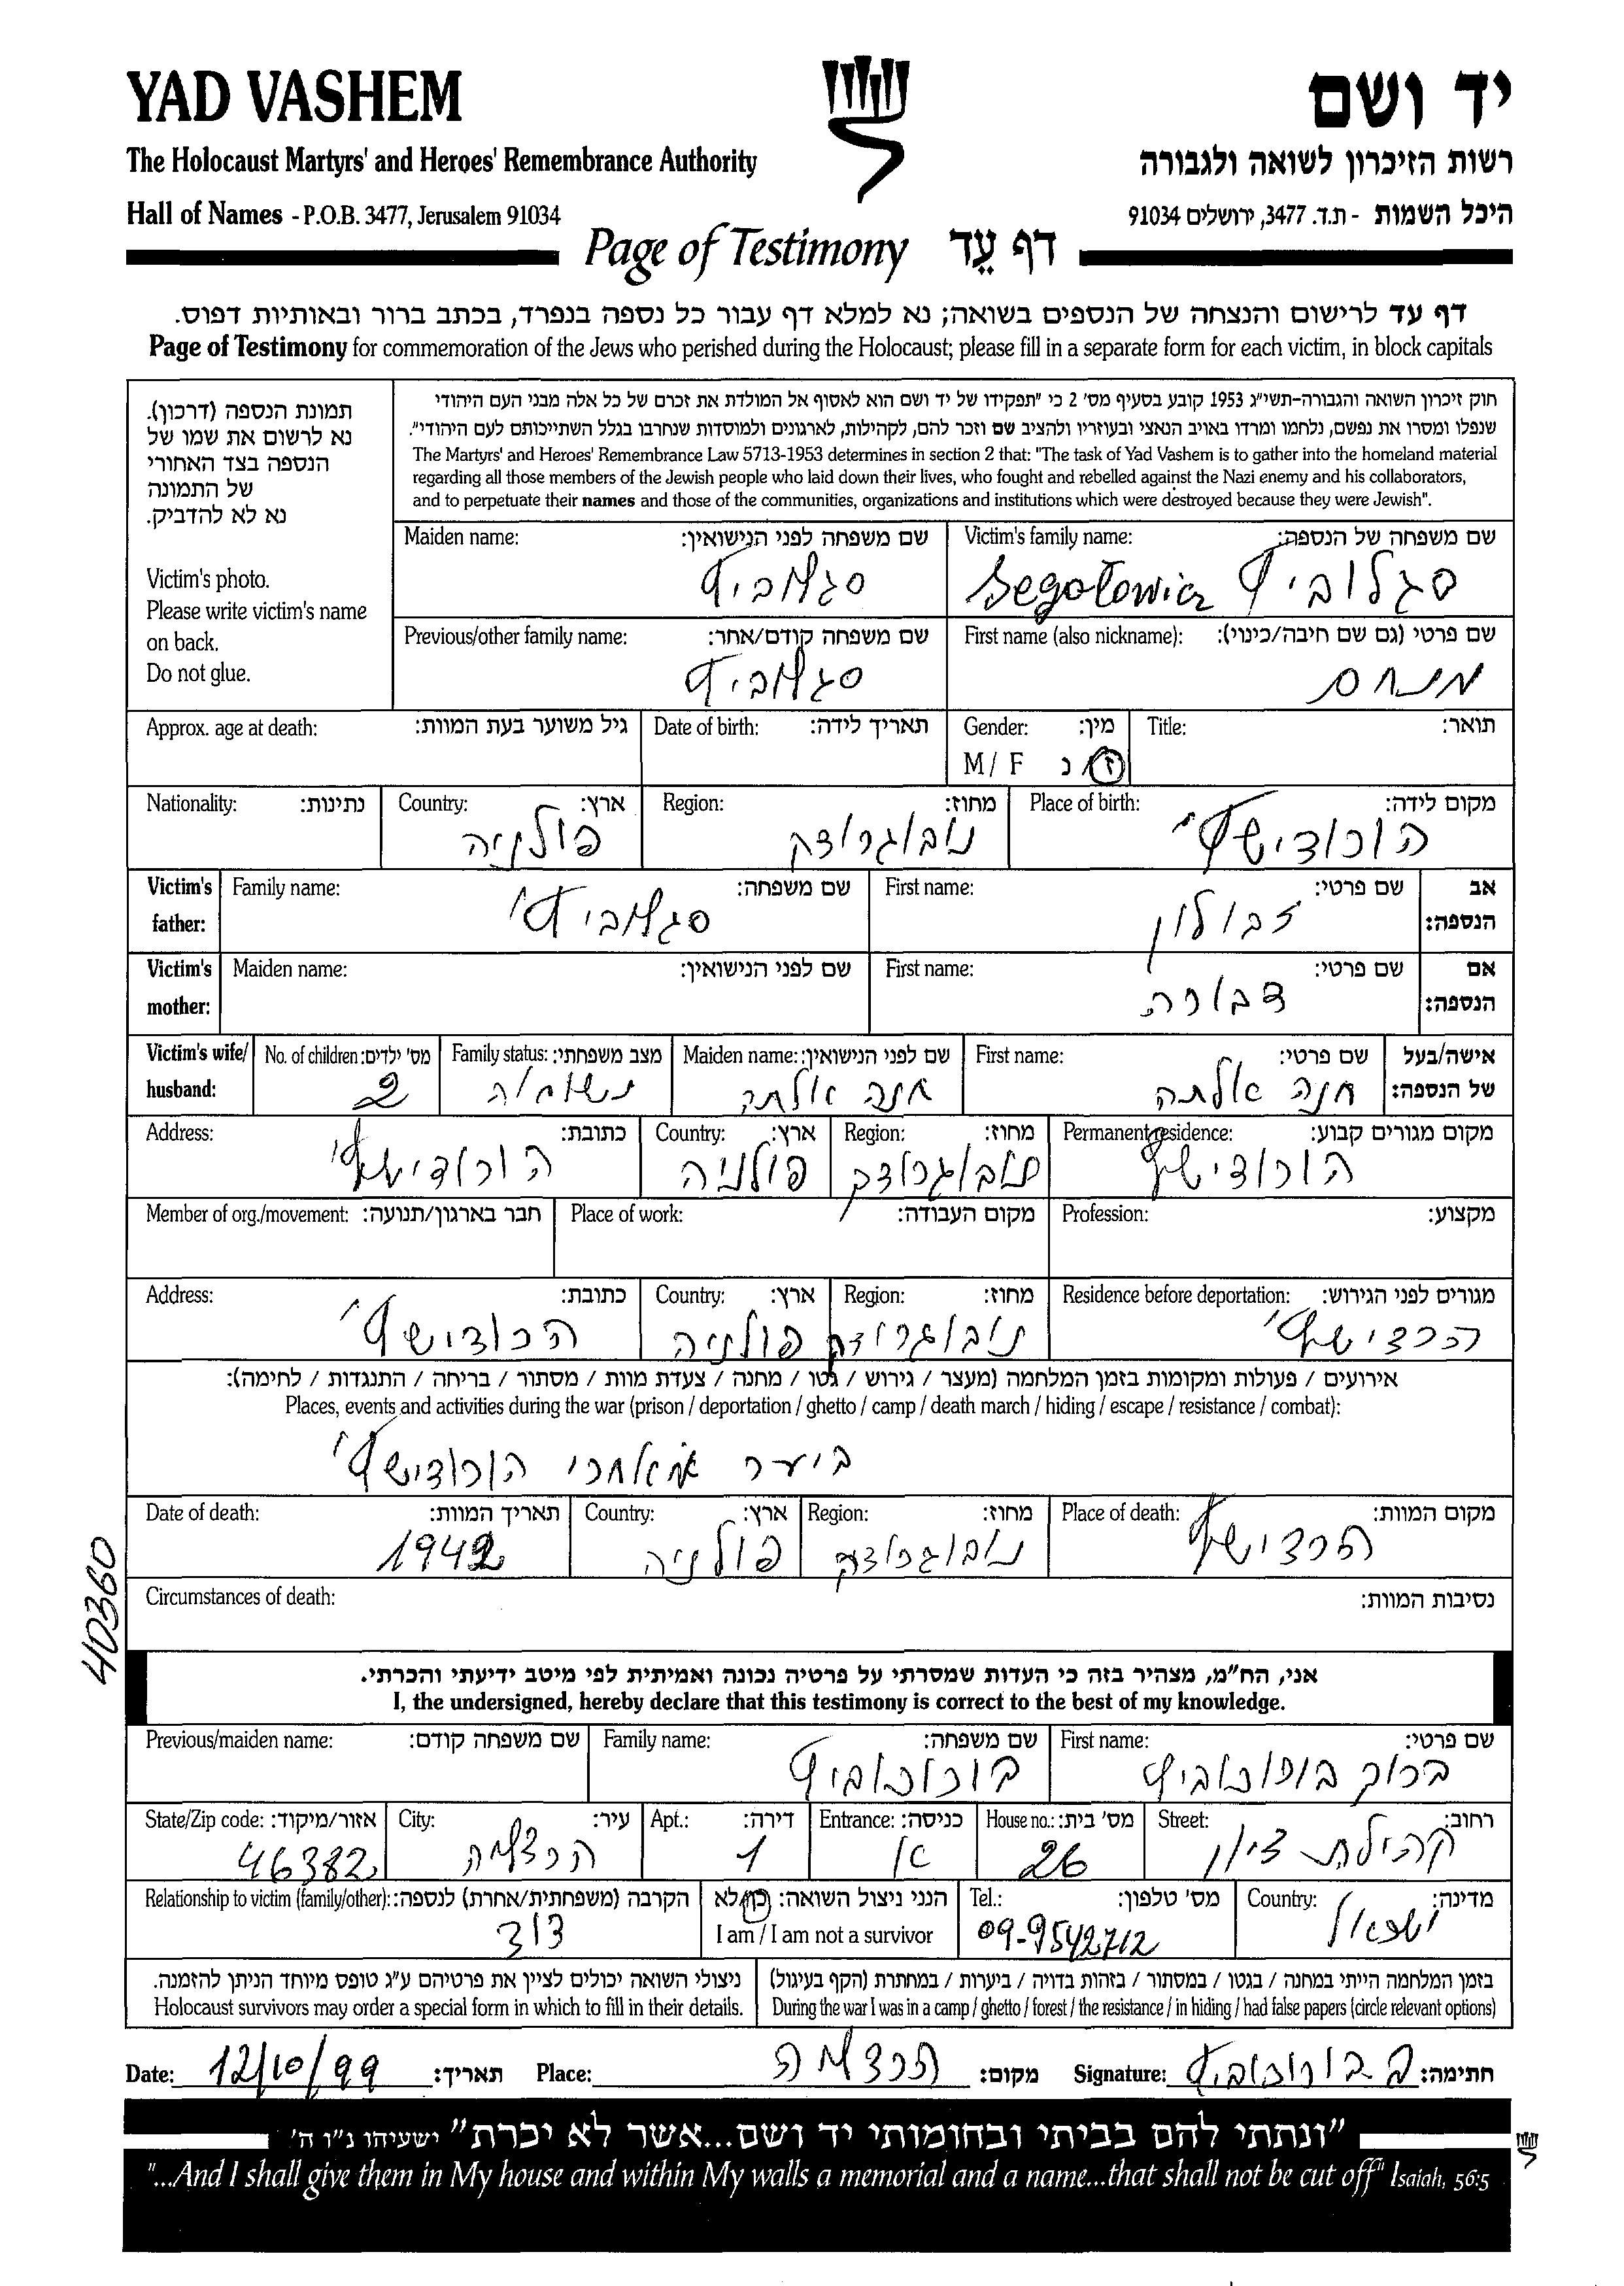 YAD VASHEM
יד ושם
The Holocaust Martyrs' and Heroes' Remembrance Authority
רשות הזיכרון לשואה ולגבורה
Hall of Names - P.O.B. 3477, Jerusalem 91034
היכל השמות - ת.ד. 3477, ירושלים 91034
Page of Testimony דף עֵד
דף עד לרישום והנצחה של הנספים בשואה; נא למלא דף עבור כל נספה בנפרד, בכתב ברור ובאותיות דפוס.
Page of Testimony for commemoration of the Jews who perished during the Holocaust; please fill in a separate form for each victim, in block capitals
תמונת הנספה (דרכון).
נא לרשום את שמו של
הנספה בצד האחורי
של התמונה
נא לא להדביק.
Victim's photo.
Please write victim's name
on back.
Do not glue.
חוק זיכרון השואה והגבורה-תשי״ג 1953 קובע בסעיף מס׳ 2 כי ״תפקידו של יד ושם הוא לאסוף אל המולדת את זכרם של כל אלה מבני העם היהודי
שנפלו ומסרו את נפשם, נלחמו ומרדו באויב הנאצי ובעוזריו ולהציב שם וזכר להם, לקהילות, לארגונים ולמוסדות שנחרבו בגלל השתייכותם לעם היהודי״.
The Martyrs' and Heroes' Remembrance Law 5713-1953 determines in section 2 that: "The task of Yad Vashem is to gather into the homeland material
regarding all those members of the Jewish people who laid down their lives, who fought and rebelled against the Nazi enemy and his collaborators,
and to perpetuate their names and those of the communities, organizations and institutions which were destroyed because they were Jewish".
Victim's family name: שם משפחה של הנספה:
סגלוביץ Segałowicz
Maiden name: שם משפחה לפני הנישואין:
סגלוביץ
First name (also nickname): שם פרטי (גם שם חיבה/כינוי):
מנחם
Previous/other family name: שם משפחה קודם/אחר:
סגלוביץ
Title: תואר:
Gender: מין:
M / F ז / נ
Date of birth: תאריך לידה:
Approx. age at death: גיל משוער בעת המוות:
Place of birth: מקום לידה:
הורודישץ'
Region: מחוז:
נובוגרודק
Country: ארץ:
פולניה
Nationality: נתינות:
Victim's father: אב הנספה:
First name: שם פרטי:
זבולון
Family name: שם משפחה:
סגלוביץ'
Victim's mother: אם הנספה:
First name: שם פרטי:
דבורה
Maiden name: שם לפני הנישואין:
Victim's wife/ husband: אישה/בעל של הנספה:
First name: שם פרטי:
חנה אלתה
Maiden name: שם לפני הנישואין:
חנה אלתה
Family status: מצב משפחתי:
נשוא/ה
No. of children: מס׳ ילדים:
2
Permanent residence: מקום מגורים קבוע:
הורודישץ
Region: מחוז:
נובוגרודק
Country: ארץ:
פולניה
Address: כתובת:
הורודישץ'
Profession: מקצוע:
Place of work: מקום העבודה:
Member of org./movement: חבר בארגון/תנועה:
Residence before deportation: מגורים לפני הגירוש:
הרדישץ'
Region: מחוז:
נובוגרודק
Country: ארץ:
פולניה
Address: כתובת:
הרודישץ'
אירועים / פעולות ומקומות בזמן המלחמה (מעצר / גירוש / גטו / מחנה / צעדת מוות / מסתור / בריחה / התנגדות / לחימה):
Places, events and activities during the war (prison / deportation / ghetto / camp / death march / hiding / escape / resistance / combat):
ביער הורודישץ'
Place of death: מקום המוות:
הרדישץ
Region: מחוז:
נובוגרודק
Country: ארץ:
פולניה
Date of death: תאריך המוות:
1942
Circumstances of death: נסיבות המוות:
40360
אני, הח״מ, מצהיר בזה כי העדות שמסרתי על פרטיה נכונה ואמיתית לפי מיטב ידיעתי והכרתי.
I, the undersigned, hereby declare that this testimony is correct to the best of my knowledge.
First name: שם פרטי:
ברוך
Family name: שם משפחה:
Previous/maiden name: שם משפחה קודם:
Street: רחוב:
קהילת ציון
House no.: מס׳ בית:
26
Entrance: כניסה:
א
Apt.: דירה:
1
City: עיר:
הרצליה
State/Zip code: אזור/מיקוד:
46382
Country: מדינה:
ישראל
Tel.: מס׳ טלפון:
09-9542712
הנני ניצול השואה: כן/לא
I am / I am not a survivor
Relationship to victim (family/other): הקרבה (משפחתית/אחרת) לנספה:
דוד
בזמן המלחמה הייתי במחנה / בגטו / במסתור / בזהות בדויה / ביערות / במחתרת (הקף בעיגול)
During the war I was in a camp / ghetto / forest / the resistance / in hiding / had false papers (circle relevant options)
ניצולי השואה יכולים לציין את פרטיהם ע״ג טופס מיוחד הניתן להזמנה.
Holocaust survivors may order a special form in which to fill in their details.
Date: 12/10/99 תאריך: Place: הרצליה מקום: Signature: חתימה:
״ונתתי להם בביתי ובחומותי יד ושם...אשר לא יכרת״ ישעיהו נ״ו ה׳
"...And I shall give them in My house and within My walls a memorial and a name...that shall not be cut off" Isaiah, 56:5